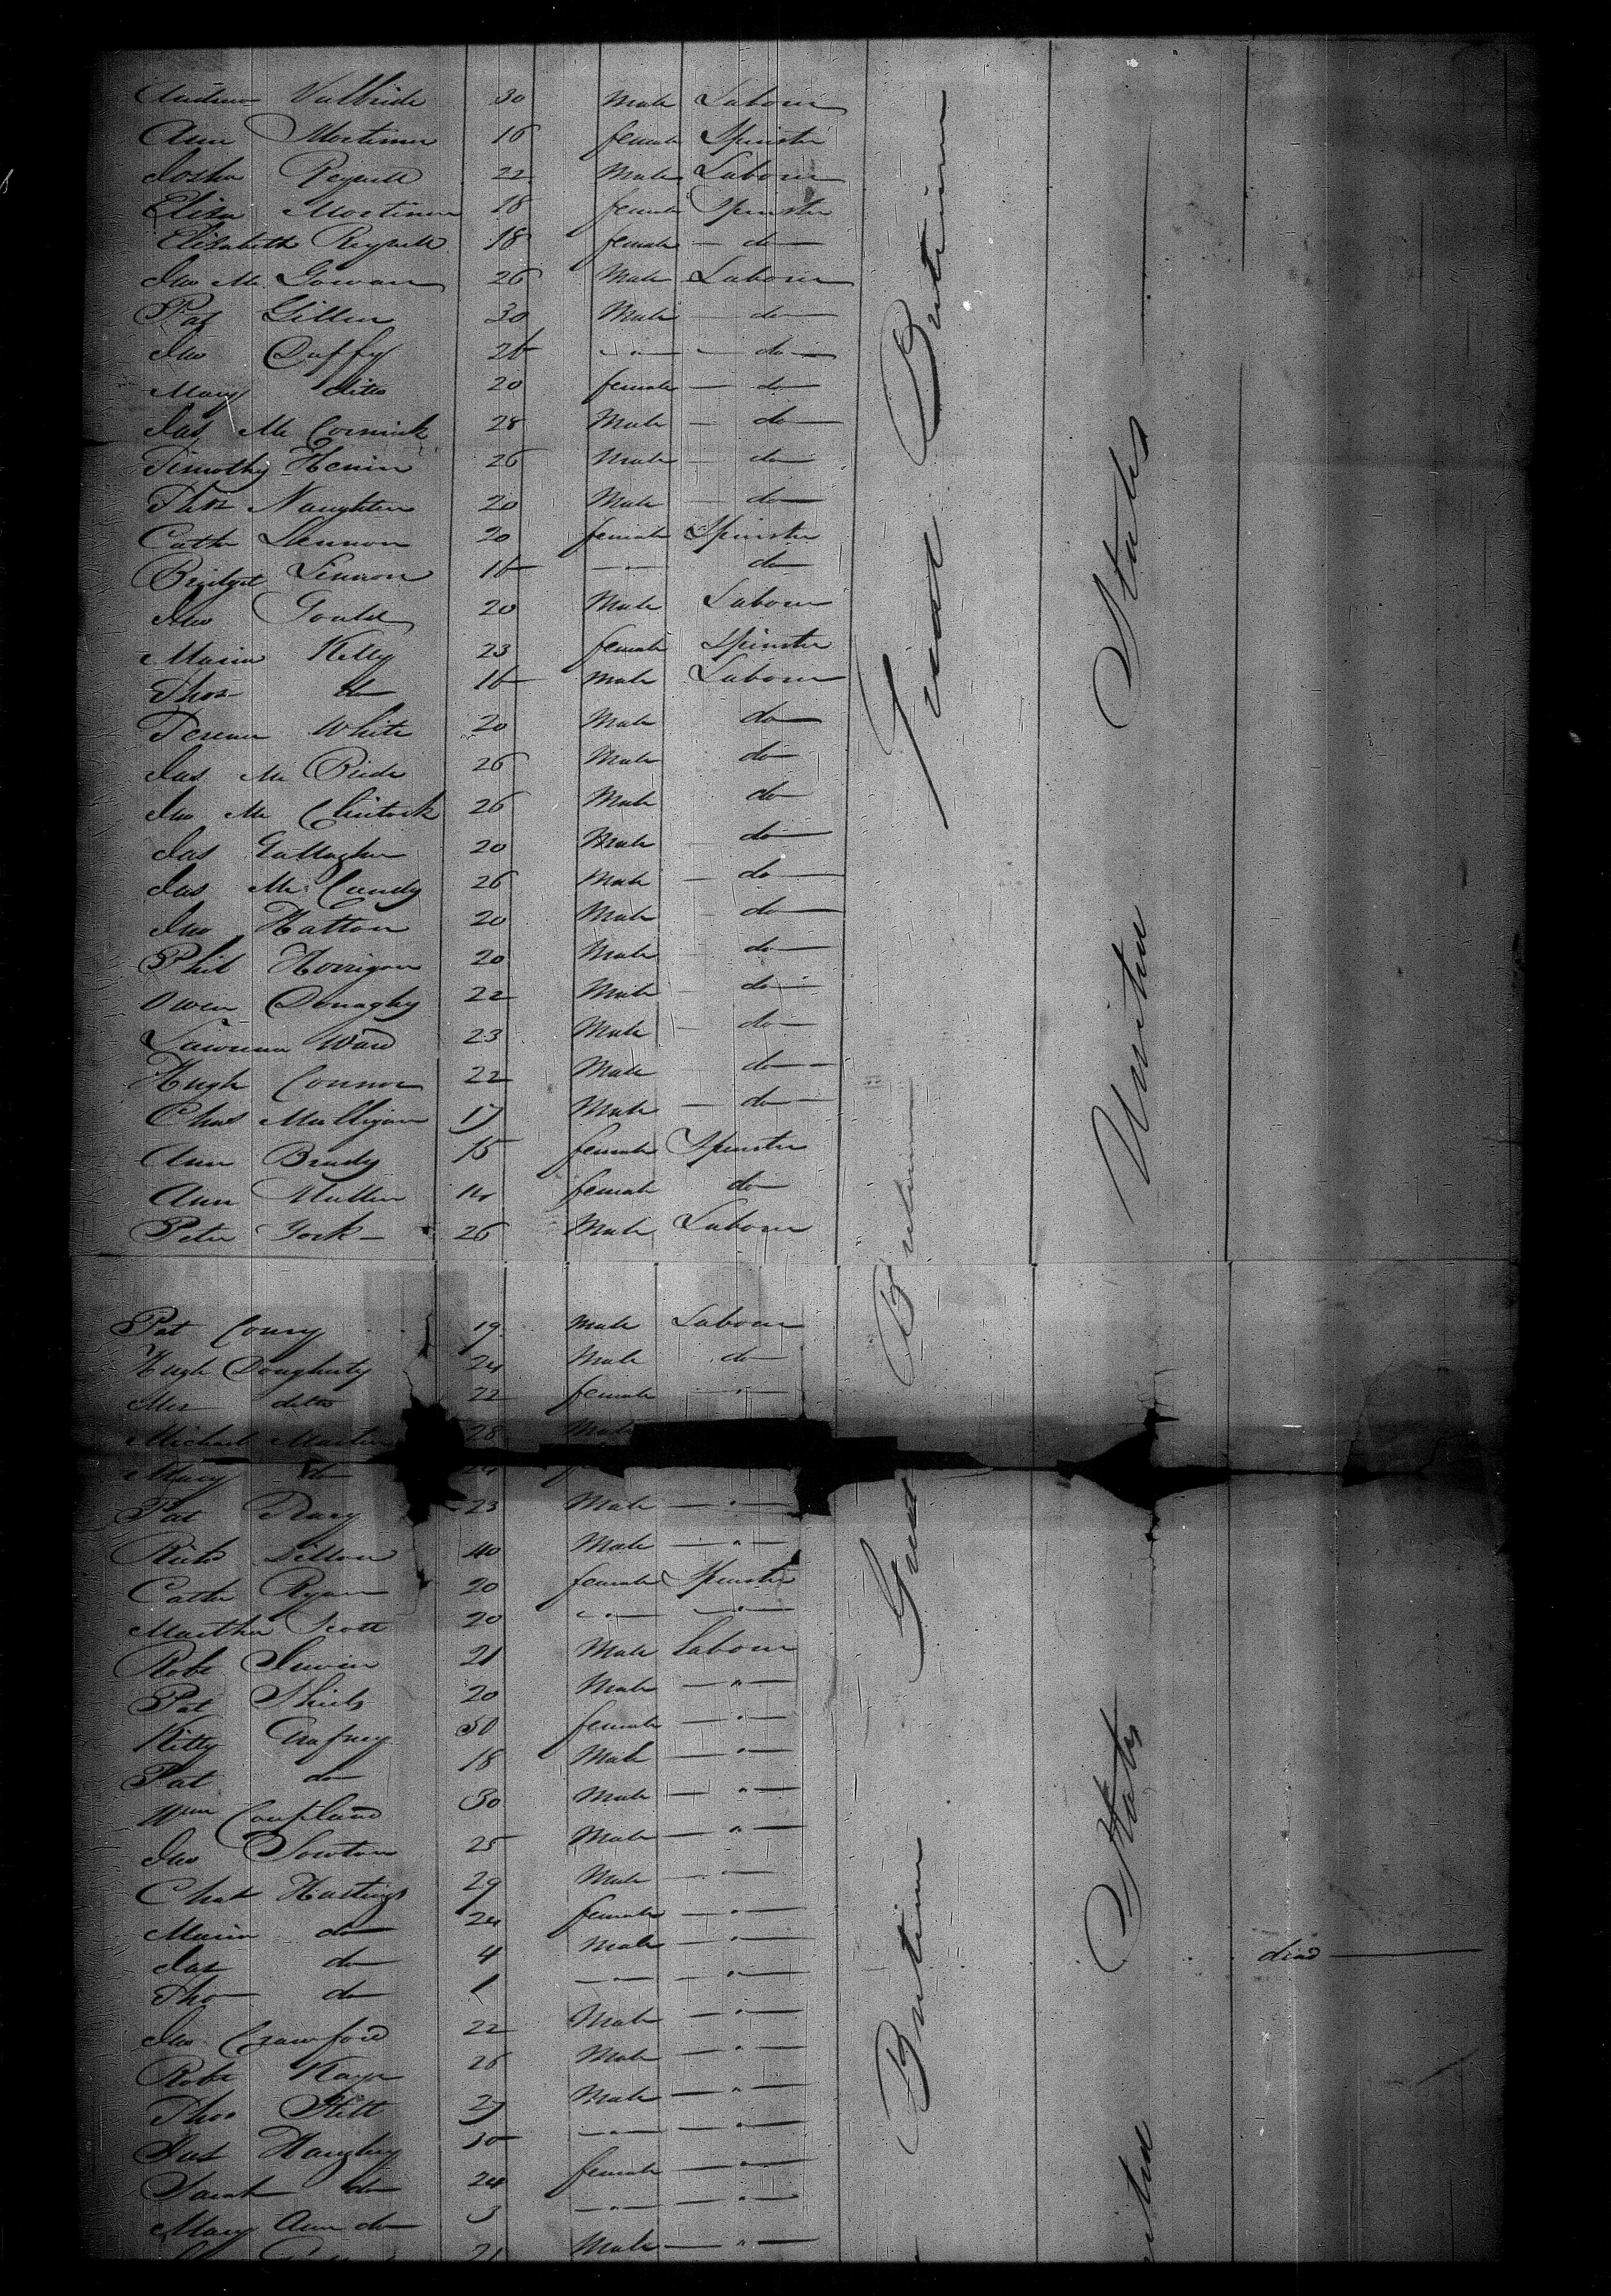 Andrew Valbride 30 Male Labourer
Ann Mortimer 16 female Spinster
Josha Reynell 22 Male Labourer
Eliza Mortimer 18 female Spinster
Elizabeth Reynell 18 female — do —
Jno Mc Gowan 26 Male Labourer
Pat Gillen 30 Male — do —
Jno Duffy 26 — " — — do —
Mary ditto 20 female — do —
Jas Mc Cormick 28 Male — do —
Timothy Henin 26 Male — do —
Thos Naughten 20 Male — do —
Cath Lennon 20 female Spinster
Bridget Lennon 16 — " — do
Jno Gould 20 Male Labourer
Maria Kelly 23 female Spinster
Thos do 16 male Labourer
Terence White 20 Male do
Jas Mc Bride 26 Male do
Jno Mc Clintock 26 Male do
Jas Gallagher 20 Male do
Jas Mc Candy 26 Male — do —
Jno Hatton 20 Male — do —
Phil Horrigan 20 Male — do —
Owen Donaghy 22 Male — do —
Lawrence Ward 23 Male — do —
Hugh Connor 22 Male — do —
Chas Mulligan 17 Male — do —
Ann Brady 15 female Spinster
Ann Mullen 14 female do
Peter York 26 Male Labourer
Great Britain
United States
Pat Conry 19 Male Labourer
Hugh Dougherty 24 Male do
Mrs ditto 22 female — " —
Michael Martin 28 Male
Mary do 24
Pat 23 Male — " —
Richd Dillon 40 Male — " —
Cathe Ryan 20 female Spinster
Martha Scott 20 — " — — " —
Robt Irwin 21 Male Labourer
Pat Shiels 20 Male — " —
Kitty Gafney 50 female — " —
Pat do 18 Male — " —
Wm Coupland 30 Male — " —
Jno Sowton 25 Male — " —
Chas Hastings 29 Male — " —
Maria do 24 female — " —
Jas do 4 Male — " —
Tho do 1 — " — — " — died
Jno Crawford 22 Male — " —
Robt Kaye 26 Male — " —
Thos Stitt 27 Male — " —
Jas Haughey 30 — " — — " —
Sarah do 24 female — " —
Mary Ann do 3 — " — — " —
21 Male — " —
Great Britain
Britain
States